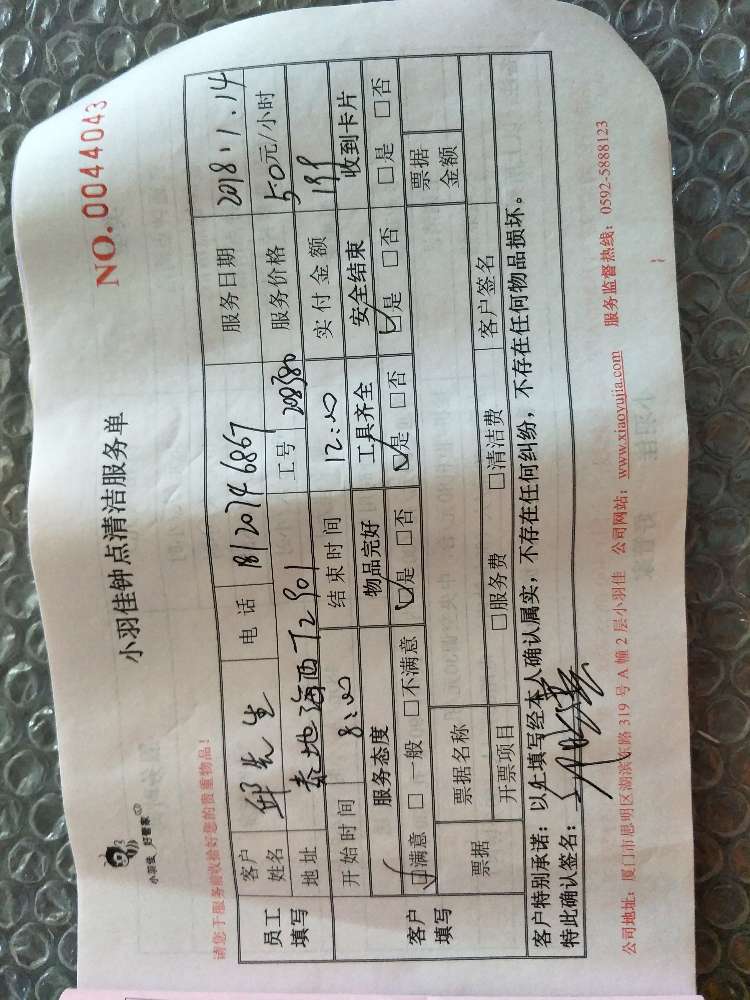 小羽佳 好管家
小羽佳钟点清洁服务单
NO.0044043
请您于服务前收拾好您的贵重物品!
员工填写 客户姓名 邱先生 电话 18120746867 服务日期 2018.1.14
地址 泰地海西T2901 工号 208580 服务价格 50元/小时
开始时间 8:00 结束时间 12:00 实付金额 199
客户填写 服务态度 物品完好 工具齐全 安全结束 收到卡片
☑满意 □一般 □不满意 ☑是 □否 ☑是 □否 ☑是 □否 □是 □否
票据 票据名称 票据金额
开票项目 □服务费 □清洁费 客户签名
客户特别承诺:以处填写经本人确认属实,不存在任何纠纷,不存在任何物品损坏。
特此确认签名:
公司地址:厦门市思明区湖滨东路319号A幢2层小羽佳 公司网站:www.xiaoyujia.com 服务监督热线:0592-5888123